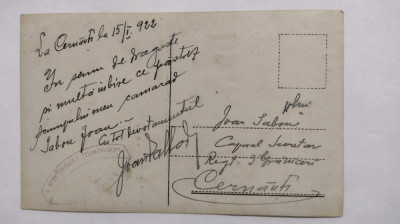 La Cernăuți la 15/I 922
In semn de dragoste
și multă iubire ce păstrez
scumpului meu camarad
Sabou Ioan
Cu tot devotamentul
Ioan
Ioan Sabou
Caporal
Regt. 3 Grăniceri
Cernăuți